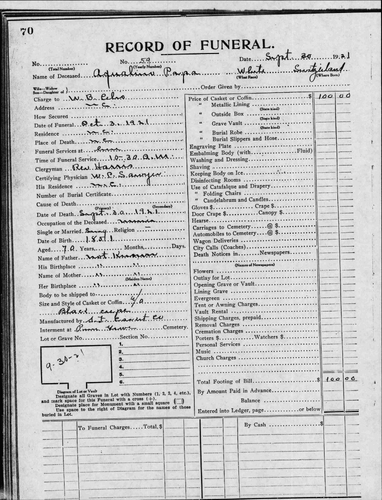 70
RECORD OF FUNERAL.
No. 59 Date Sept 30 1921
(Total Number) (Yearly Number)
Name of Deceased Aqualino Papa White Switzerland
(What Race) (Where Born)
Order Given by
Charge to W. B.
Address
How Secured
Date of Funeral Oct 3. 1921
Residence
Place of Death
Funeral Services at
Time of Funeral Service 10-30 a.m.
Clergyman Rev Harris
Certifying Physician W. P. Sawyer
His Residence
Number of Burial Certificate
Cause of Death
Date of Death Sept. 30 1921
Occupation of the Deceased
Single or Married Religion
Date of Birth 1851
Aged 70 Years, Months, Days
Name of Father not Known
His Birthplace
Name of Mother
(Maiden Name)
Her Birthplace
Body to be shipped to
Size and Style of Casket or Coffin 6/0
Black
Manufactured by S.F. Casket Co
Interment at Cemetery.
Lot or Grave No. Section No.
9-30-21
1.
2.
3.
4.
5.
6.
Diagram of Lot or Vault
Designate all Graves in Lot with Numbers (1, 2, 3, 4, etc.),
and mark space for this Funeral with a cross (+).
Designate place for Monument with a small square
Use space to right of Diagram for the names of those
buried in Lot.
Price of Casket or Coffin 100 00
" Metallic Lining
" Outside Box
" Grave Vault
" Burial Robe
" Burial Slippers and Hose
Engraving Plate
Embalming Body (with Fluid)
Washing and Dressing
Shaving
Keeping Body on Ice
Disinfecting Rooms
Use of Catafalque and Drapery
" Folding Chairs
" Candelabrum and Candles
Gloves $ Crape $
Door Crape $ Canopy $
Hearse
Carriages to Cemetery @ $
Automobiles to Cemetery @ $
Wagon Deliveries
City Calls (Coaches)
Death Notices in Newspapers
(Names of Newspapers)
Flowers
Outlay for Lot
Opening Grave or Vault
Lining Grave
Evergreen
Tent or Awning Charges
Vault Rental
Shipping Charges, prepaid
Removal Charges
Cremation Charges
Porters $ Watchers $
Personal Services
Music
Church Charges
Total Footing of Bill $ 100 00
By Amount Paid in Advance
Balance
Entered into Ledger, page or below
To Funeral Charges Total $ By Cash $